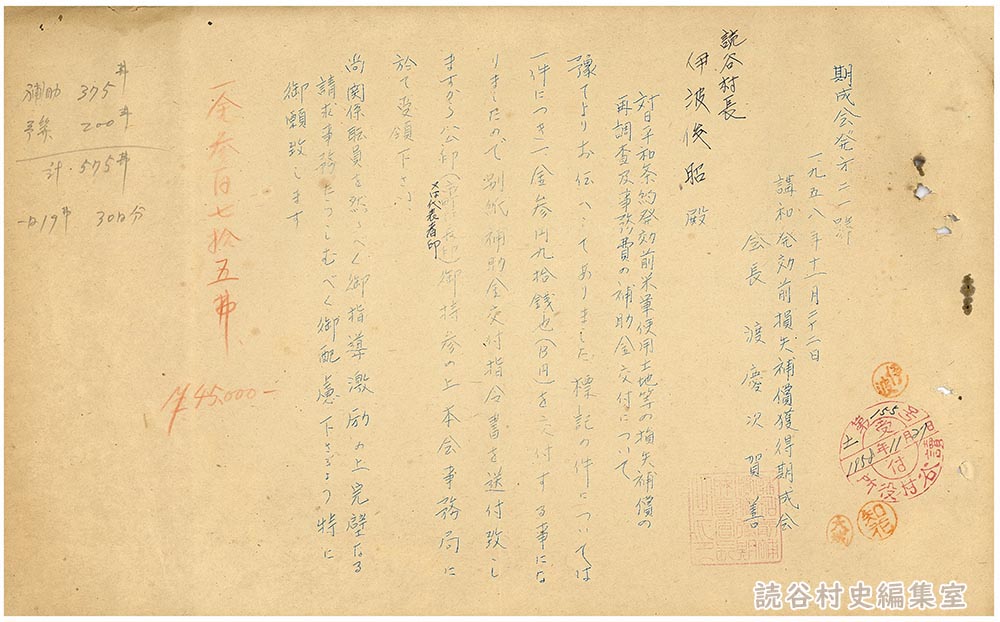 期成会発才二一号
一九五八年十一月二十二日
講和発効前損失補償獲得期成会
会長 渡慶次賀善
読谷村長
伊波俊昭殿
対日平和条約発効前米軍使用土地等の損失補償の
再調査及事務費の補助金交付について
豫てよりお伝へしてありました標記の件については
一件につき一金参円九拾銭也(B円)を交付する事にな
りましたので別紙補助金交付指令書を送付致し
ますから公印御持参の上本会事務局に
又は代表者印
於て受領下さい
尚関係職員を然るべく御指導激励の上完璧なる
請求事務たらしむべく御配慮下さるよう特に
御願致します
一金参百七拾五弗
45,000-
補助 375弗
200弗
計 575弗
一日19弗 30日分
伊波
第155号
受付
1958年11月
読谷村役所
知花
読谷村史編集室